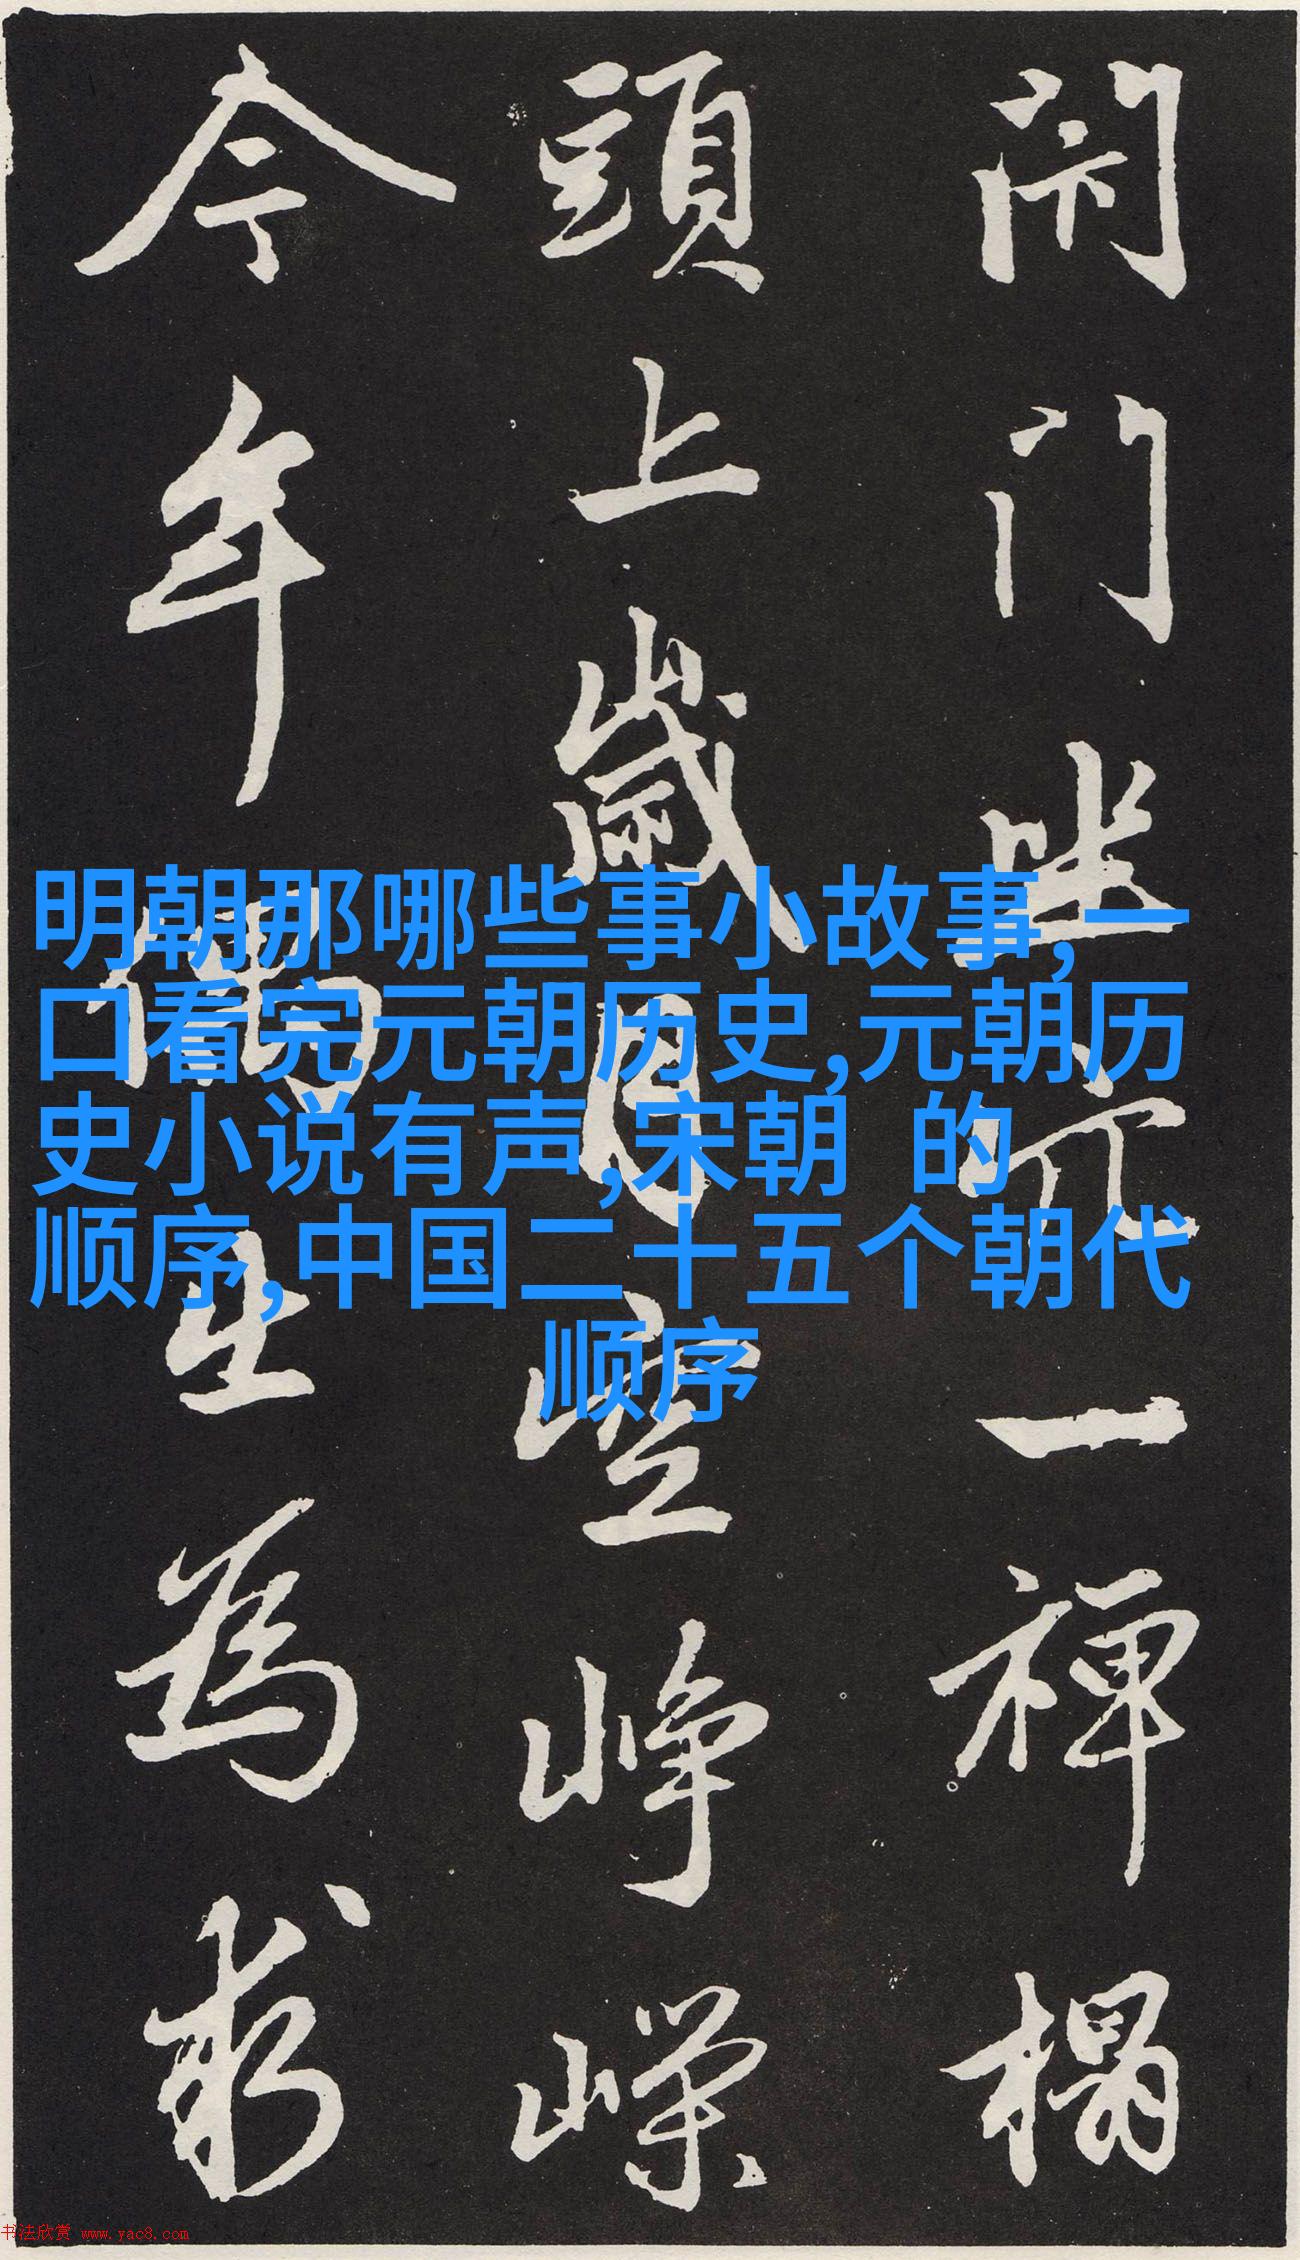 闭门坐穷一禅榻
頭上歲月空峥嵘
今年偶出为求
明朝那哪些事小故事,一
口看完元朝历史,元朝历
史小说有声,宋朝 的
顺序,中国二十五个朝代
顺序
书法欣赏 www.yac8.com